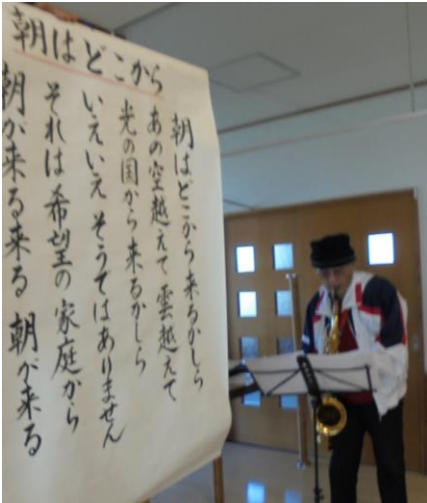 朝はどこから
朝はどこから来るかしら
あの空越えて雲越えて
光の国から来るかしら
いえいえそうではありません
それは希望の家庭から
朝が来る来る 朝が来る